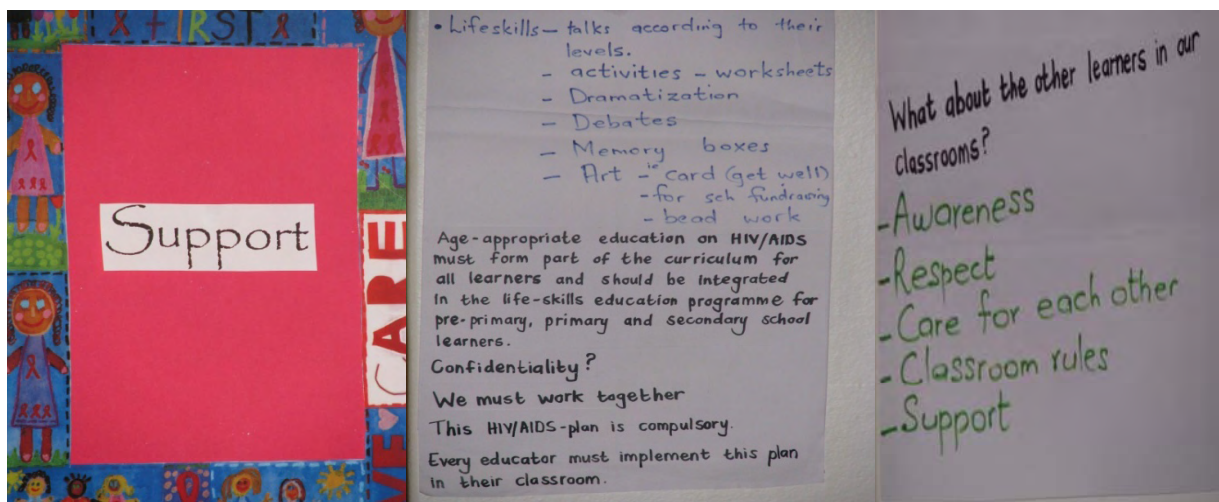 X + IRST A
Support
CARE
VE
• Lifeskills – talks according to their
levels.
– activities – worksheets
– Dramatization
– Debates
– Memory boxes
– Art – card (get well)
– for sch fundraising
– bead work
Age-appropriate education on HIV/AIDS
must form part of the curriculum for
all learners and should be integrated
in the life-skills education programme for
pre-primary, primary and secondary school
learners.
Confidentiality?
We must work together
This HIV/AIDS-plan is compulsory.
Every educator must implement this plan
in their classroom.
What about the other learners in our
classrooms?
- Awareness
- Respect
- Care for each other
- Classroom rules
- Support